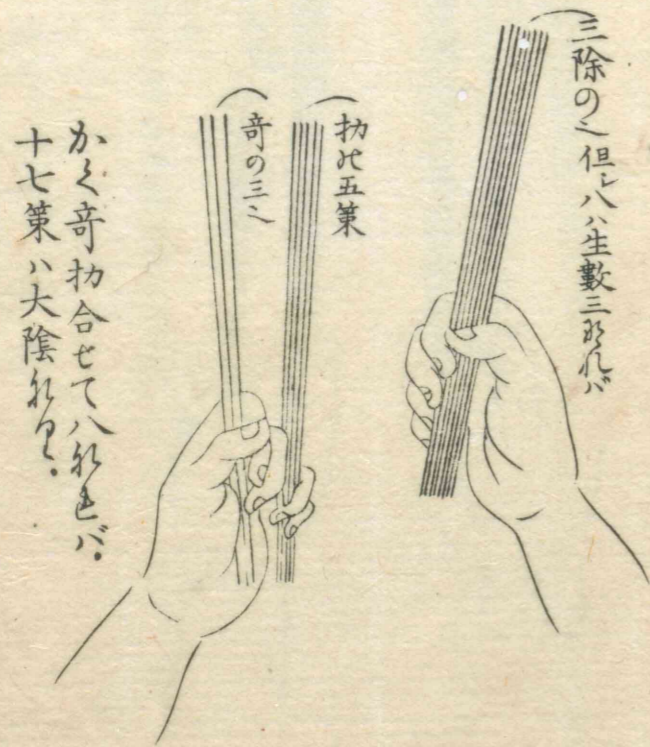 三除のこ但シ八ハ生數三なれバ
扐の五策
奇の三こ
かく奇扐合せて八なれバ。
十七策ハ大陰なり。